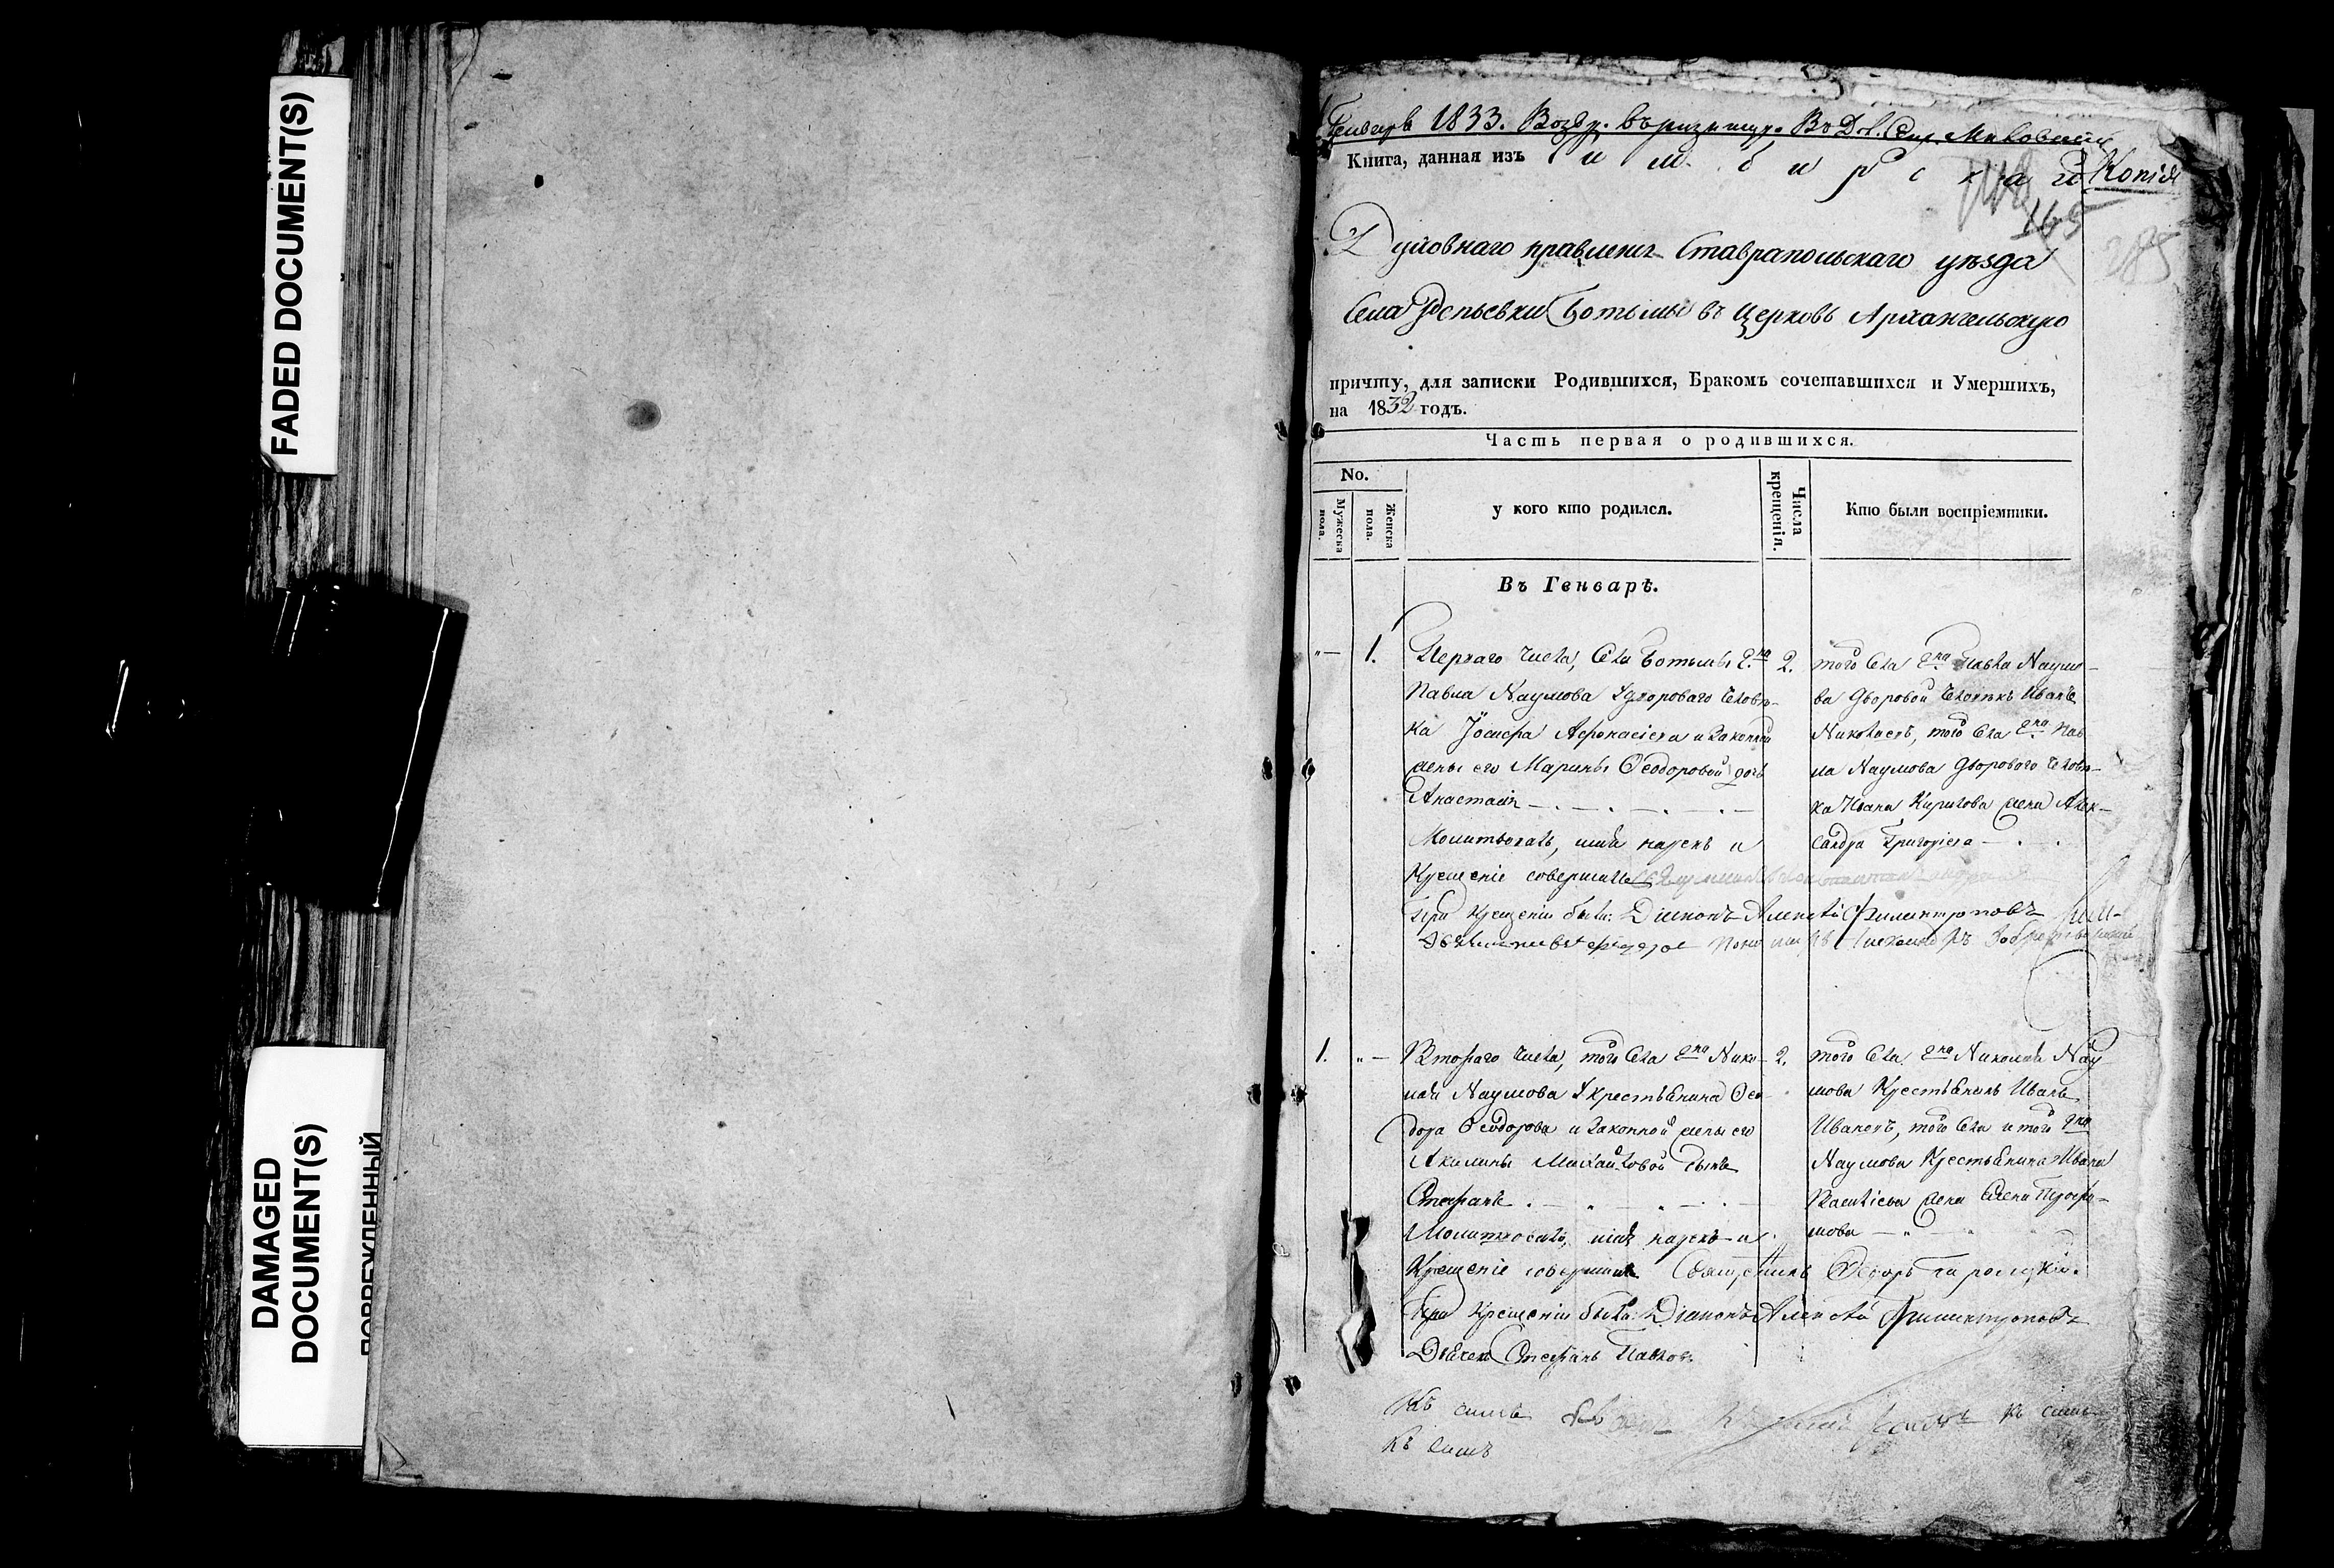 FADED DOCUMENT(S)
DAMAGED
DOCUMENT(S)
ПОВРЕЖДЕННЫЙ
Генваря 1833.
Копія
Книга, данная изъ Симбирскаго
145
285
Духовнаго правленія Ставрапольскаго уѣзда
Села Репьевки Ботьмы въ Церковь Архангельскую
причту, для записки Родившихся, Бракомъ сочетавшихся и Умершихъ,
на 1832 годъ.
Часть первая о родившихся.
No.
Мужеска пола.
Женска пола.
у кого кто родился.
Числа крещенія.
Кто были воспріемники.
Въ Генварѣ.
„— 1.
Перваго числа, Села Ботьмы Г.на
Павла Наумова у двороваго человѣ-
ка Іосифа Афонасіева и законной
жены его Марины Ѳеодоровой дочь
Анастасія
Молитвовалъ, имя нарекъ и
Крещеніе совершилъ
При Крещеніи былъ: Діаконъ Алексѣй Филантроповъ
2.
того Села Г.на Павла Наумо-
ва дворовой человѣкъ Иванъ
Николаевъ, того Села Г.на Пав
ла Наумова двороваго человѣ-
ка Ивана Кирилова жена Алек-
сандра Григоріева
1. „—
Втораго числа, того Села Г.на Нико-
лая Наумова у крестьянина Ѳео-
дора Ѳеодорова и законной жены его
Акилины Михайловой сынъ
Стефанъ
Молитвовалъ, имя нарекъ и
Крещеніе совершилъ Священникъ Ѳедоръ
При Крещеніи былъ: Діаконъ Алексѣй Филантроповъ
Дьячекъ Стефанъ Павловъ
2.
того Села Г.на Николая Нау
мова Крестьянинъ Иванъ
Ивановъ, того Села и того Г.на
Наумова Крестьянина Ивана
Васильева жена Елена Трофи-
мова
Къ симъ
Къ симъ